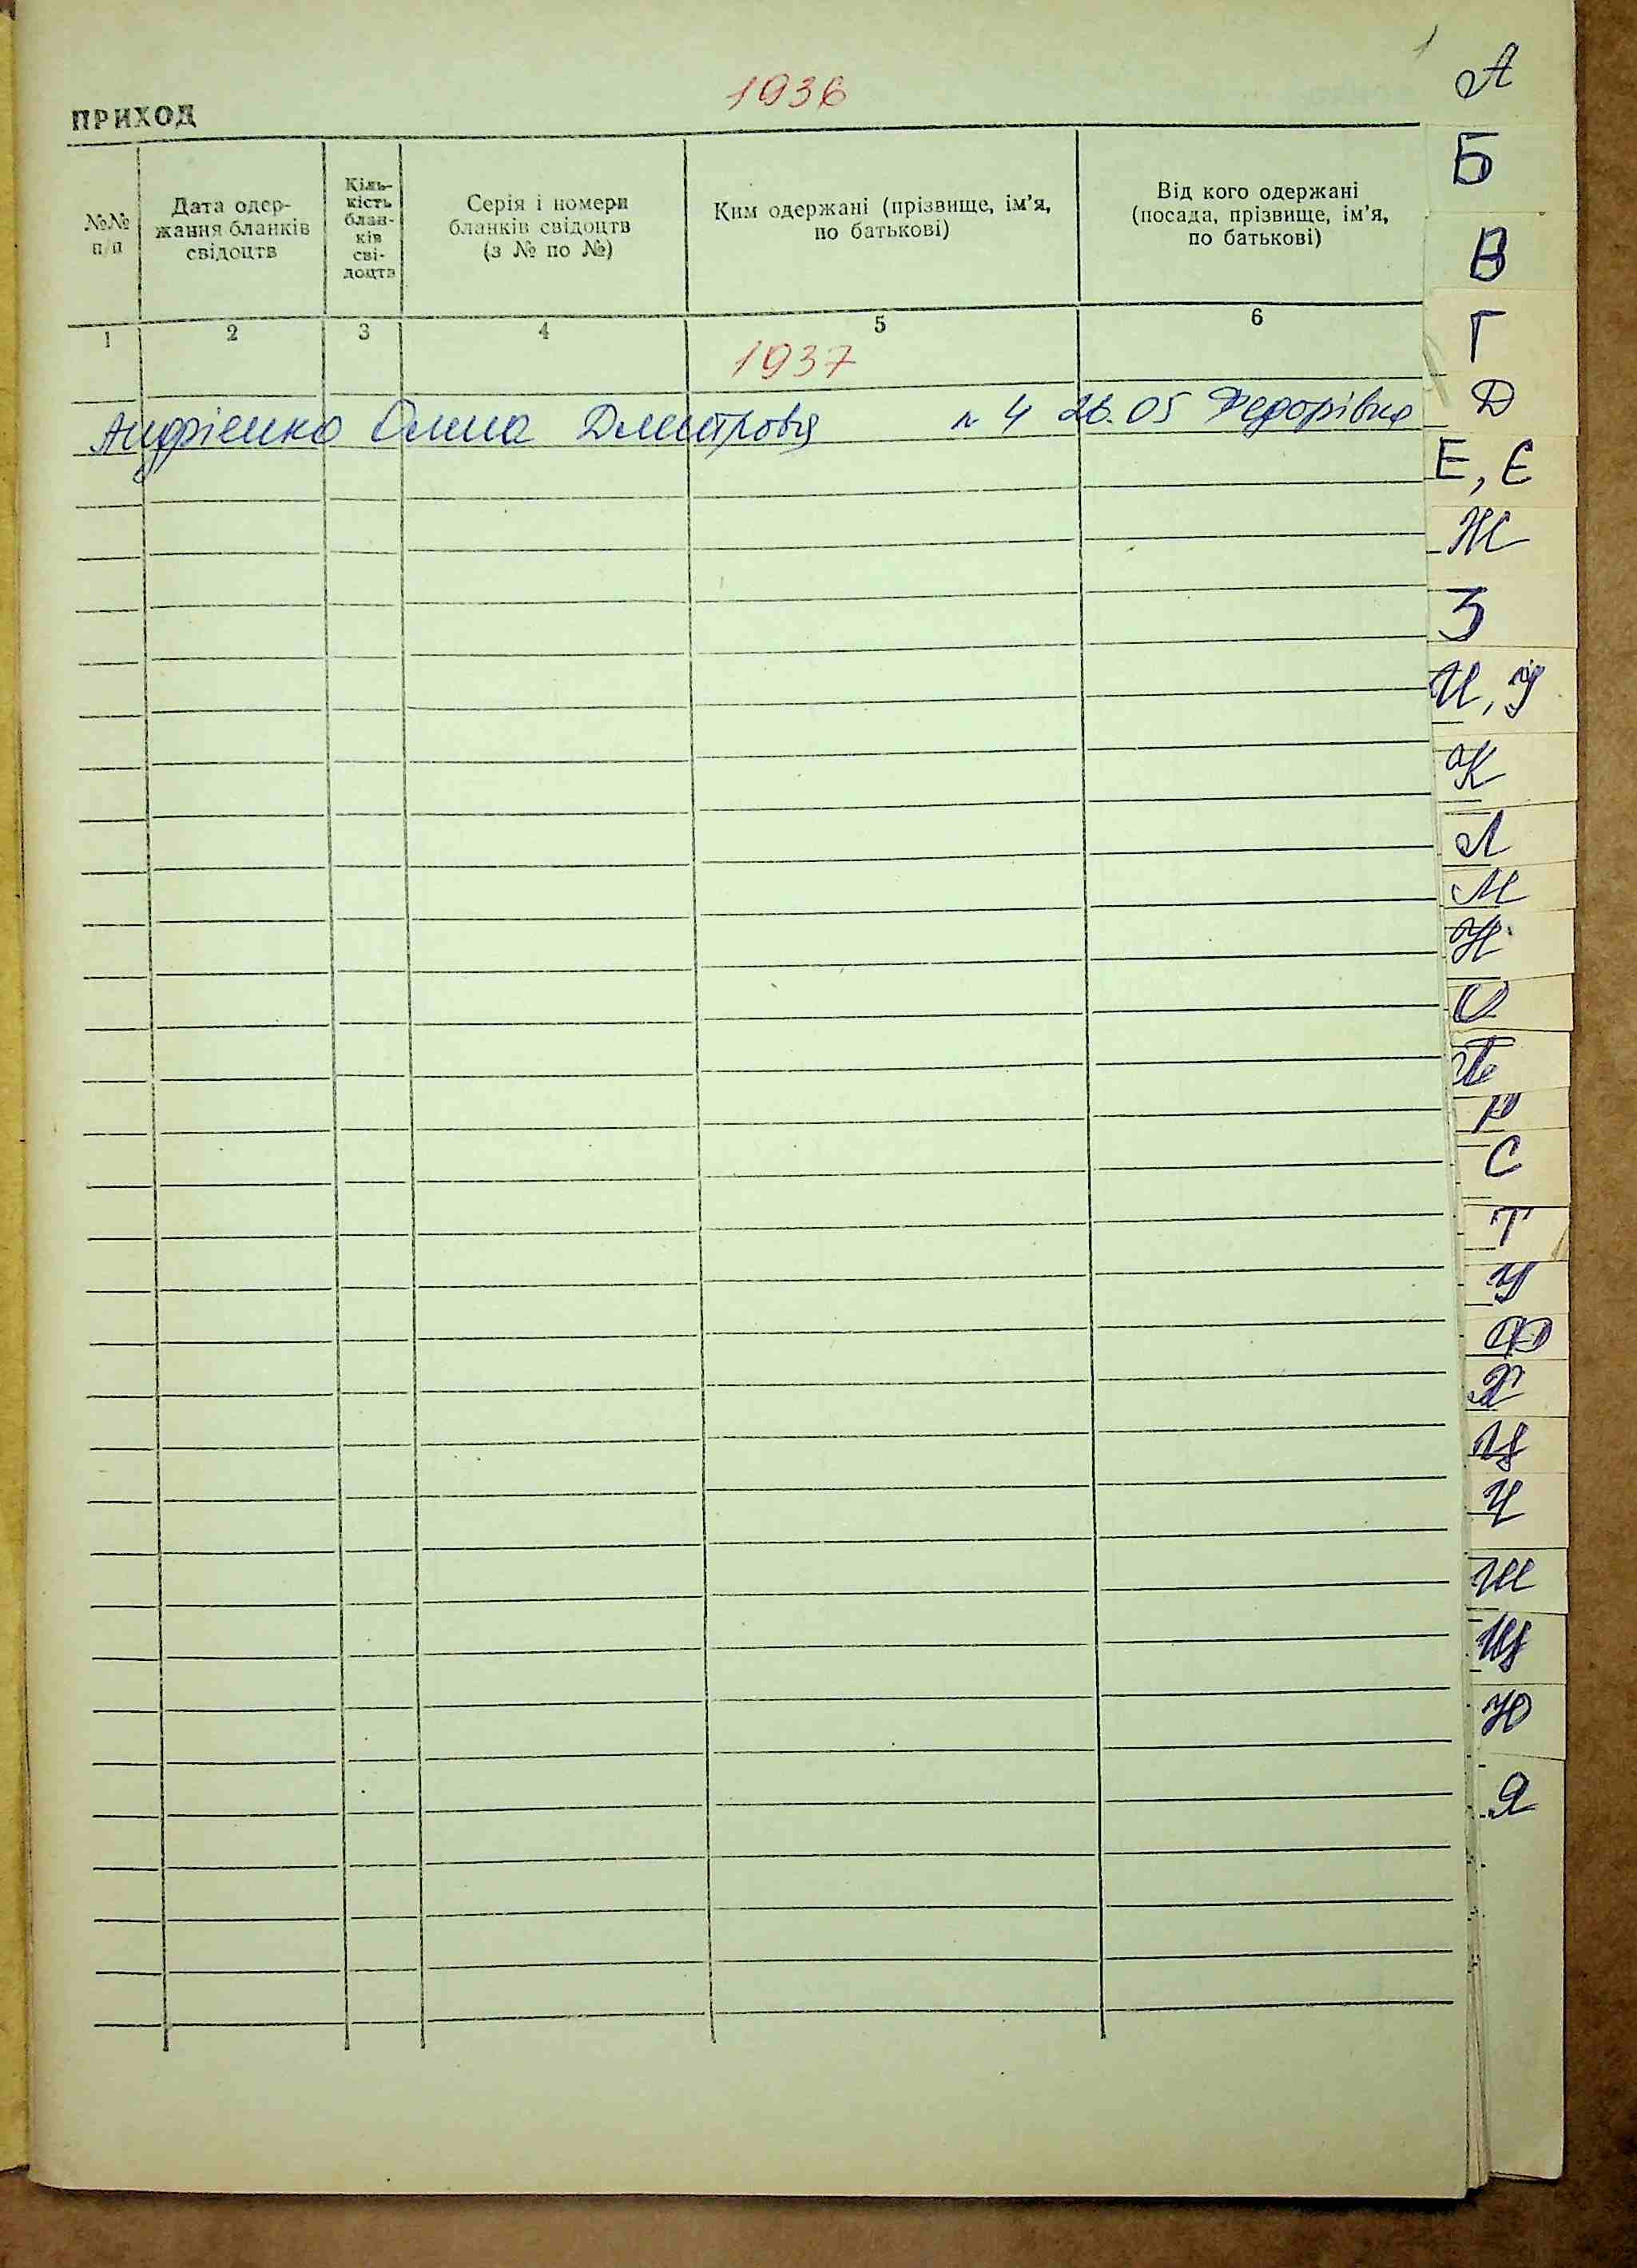 1
1936
ПРИХОД
№№
п/п
Дата одер-
жання бланків
свідоцтв
Кіль-
кість
блан-
ків
сві-
доцтв
Серія і номери
бланків свідоцтв
(з № по №)
Ким одержані (прізвище, ім’я,
по батькові)
Від кого одержані
(посада, прізвище, ім’я,
по батькові)
1 2 3 4 5 6
1937
Андрієнко Дмитровна 4 26.05 Федорівка
А
Б
В
Г
Д
Е, Є
Ж
З
И, І
К
Л
М
Н
О
П
Р
С
Т
У
Ф
Х
Ц
Ч
Ш
Щ
Ю
Я